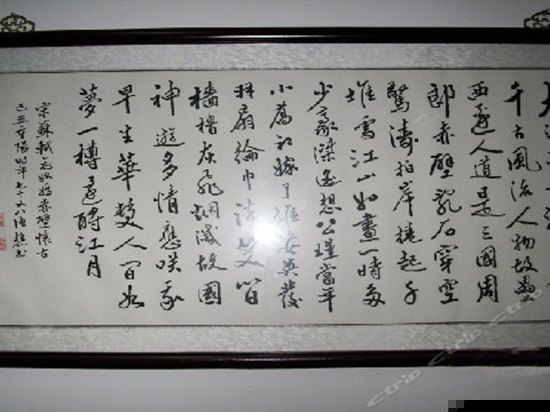 千古風流人物故壘
西邊人道是三國周
郎赤壁亂石穿空
驚濤拍岸捲起千
堆雪江山如畫一時多
少豪傑遙想公瑾當年
小喬初嫁了雄姿英發
羽扇綸巾談笑間
檣櫓灰飛烟滅故國
神遊多情應咲我
早生華髮人間如
夢一樽還酹江月
宋蘇軾念奴嬌赤壁懷古
己丑重陽時年七十又八
Ctrip Ctrip Ctrip